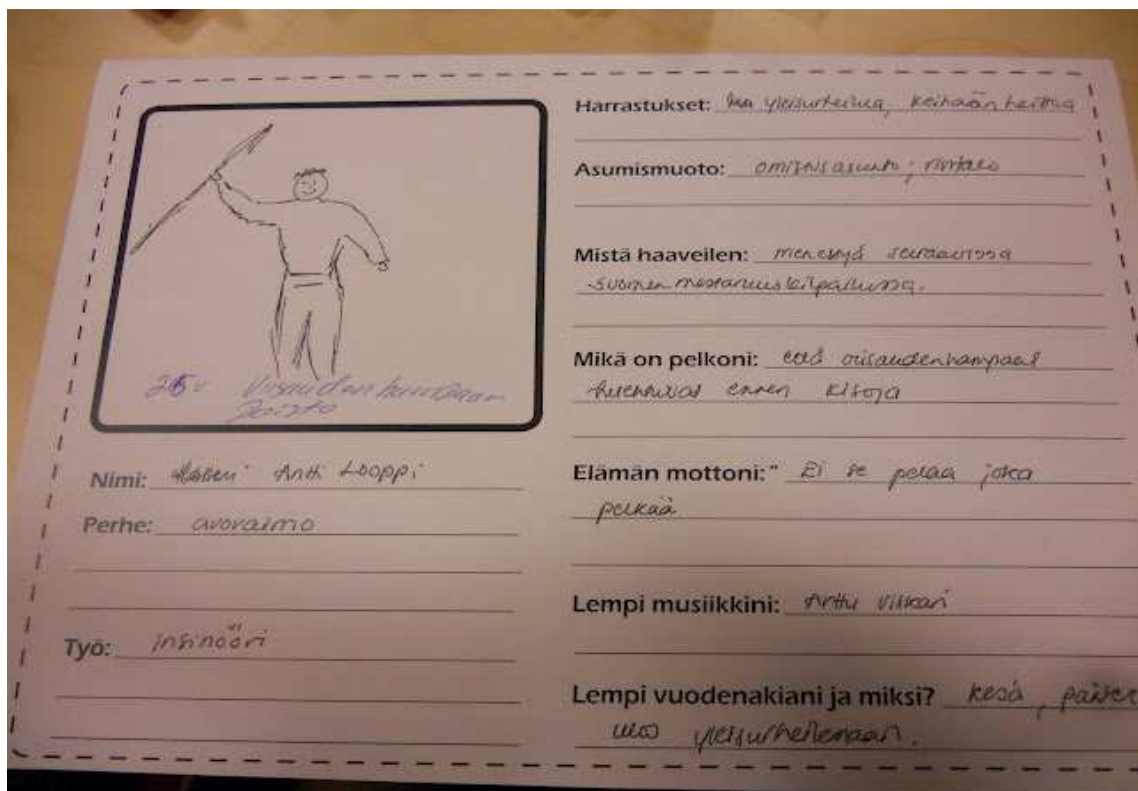 25v Viisauden hampaan
poisto
Nimi: Antti Looppi
Perhe: avovaimo
Työ: insinööri
Harrastukset: yleisurheilua, keihään heittoa
Asumismuoto: omistusasunto; rivitalo
Mistä haaveilen: menestyä seuraavissa
suomen mestaruus kilpailuissa.
Mikä on pelkoni: että viisaudenhampaat
ennen kisoja
Elämän mottoni: " Ei se pelaa joka
pelkää
Lempi musiikkini: Antti
Lempi vuodenakiani ja miksi? kesä,
ulos yleisurheilemaan.